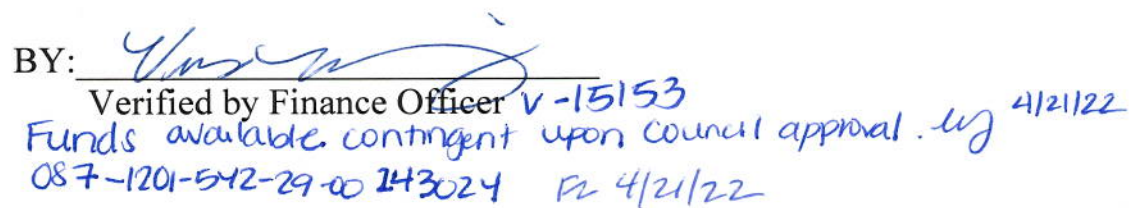 BY:
Verified by Finance Officer V-15153
Funds available contingent upon council approval. 4/21/22
087-1201-542-29-00 243024 FZ 4/21/22